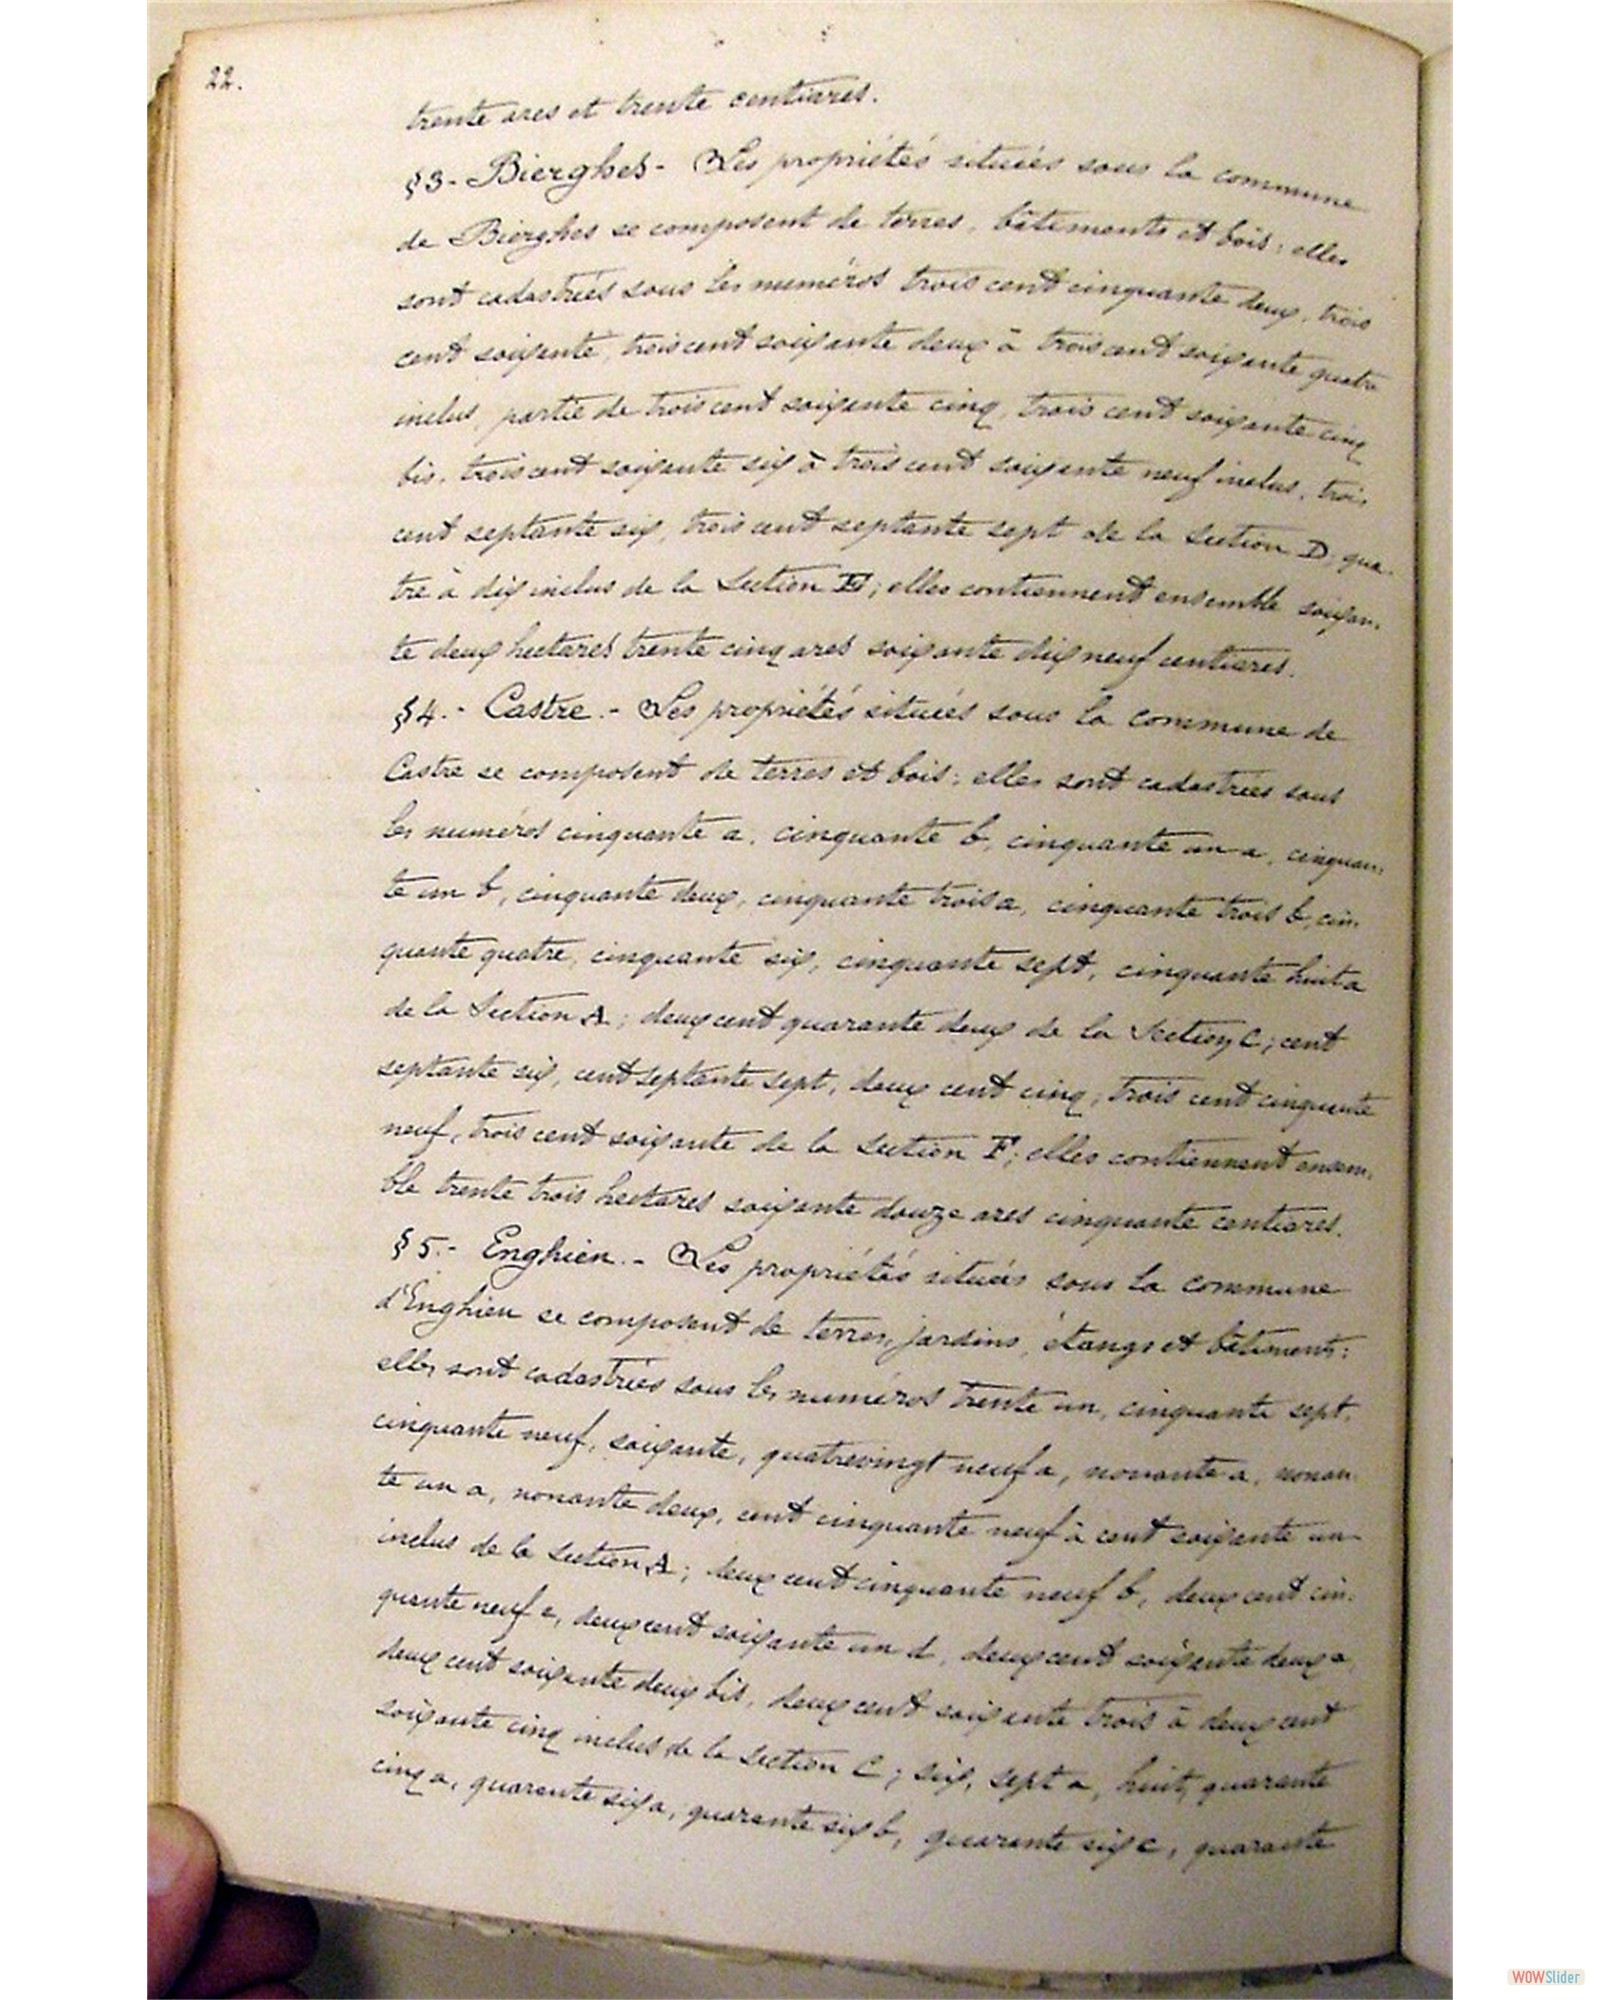 22.
trente ares et trente centiares.
§3- Bierghes- Les propriétés situées sous la commune
de Bierghes se composent de terres, bâtiments et bois: elles
sont cadastrées sous les numéros trois cent cinquante deux, trois
cent soixante, trois cent soixante deux à trois cent soixante quatre
inclus, partie de trois cent soixante cinq, trois cent soixante cinq
bis, trois cent soixante six à trois cent soixante neuf inclus, trois
cent septante six, trois cent septante sept de la Section D, qua-
tre à dix inclus de la Section E; elles contiennent ensemble soixan-
te deux hectares trente cinq ares soixante dix neuf centiares.
§4.- Castre.- Les propriétés situées sous la commune de
Castre se composent de terres et bois: elles sont cadastrées sous
les numéros cinquante a, cinquante b, cinquante un a, cinquan-
te un b, cinquante deux, cinquante trois a, cinquante trois b, cin-
quante quatre, cinquante six, cinquante sept, cinquante huit a
de la Section A; deux cent quarante deux de la Section C; cent
septante six, cent septante sept, deux cent cinq, trois cent cinquante
neuf, trois cent soixante de la Section F; elles contiennent ensem-
ble trente trois hectares soixante douze ares cinquante centiares.
§5.- Enghien.- Les propriétés situées sous la commune
d'Enghien se composent de terres, jardins, étangs et bâtiments:
elles sont cadastrées sous les numéros trente un, cinquante sept,
cinquante neuf, soixante, quatrevingt neuf a, nonante a, nonan-
te un a, nonante deux, cent cinquante neuf à cent soixante un
inclus de la Section A; deux cent cinquante neuf b, deux cent cin-
quante neuf c, deux cent soixante un d, deux cent soixante deux a,
deux cent soixante deux bis, deux cent soixante trois à deux cent
soixante cinq inclus de la Section C; six, sept a, huit, quarante
cinq a, quarante six a, quarante six b, quarante six c, quarante
WOWSlider